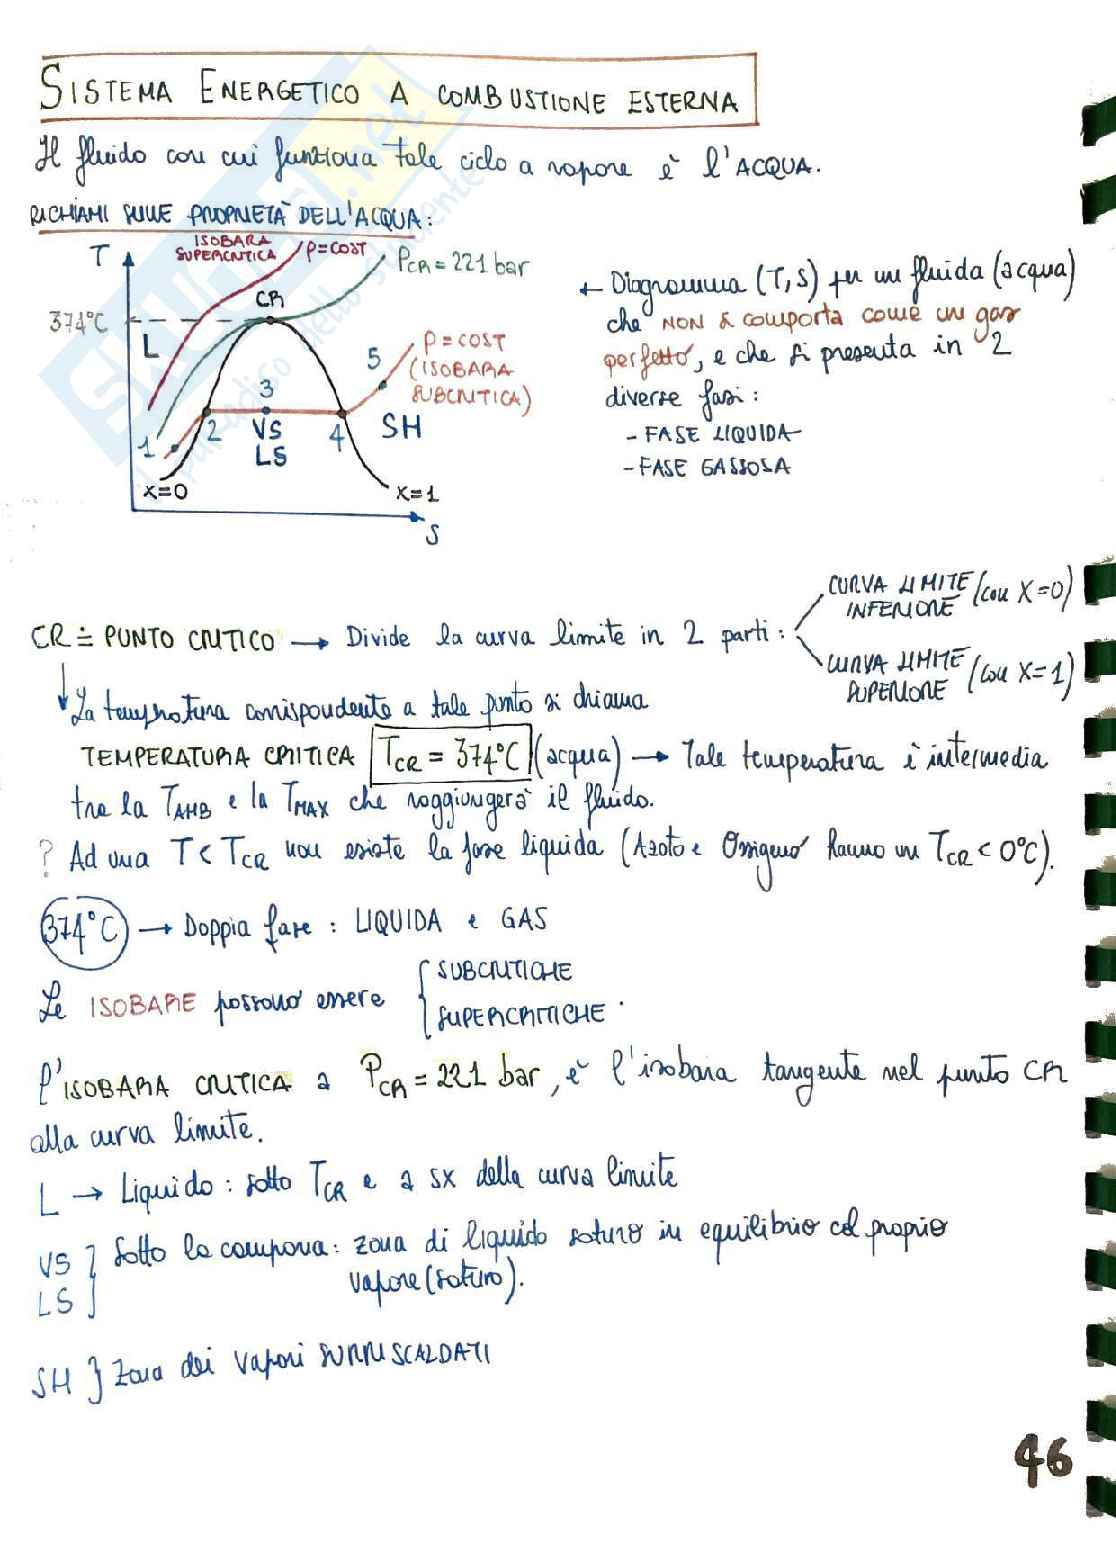 SISTEMA ENERGETICO A COMBUSTIONE ESTERNA
Il fluido con cui funziona tale ciclo a vapore è l'ACQUA.
RICHIAMI SULLE PROPRIETÀ DELL'ACQUA:
T
ISOBARA
SUPERCRITICA
p=COST
PCR = 221 bar
CR
374°C
L
5
p = COST
(ISOBARA
SUBCRITICA)
3
1
2
VS
LS
4
SH
X=0
X=1
S
← Diagramma (T,S) per un fluido (acqua)
che NON si comporta come un gas
perfetto, e che si presenta in 2
diverse fasi:
- FASE LIQUIDA
- FASE GASSOSA
CURVA LIMITE
INFERIORE (con X=0)
CR ≐ PUNTO CRITICO → Divide la curva limite in 2 parti:
CURVA LIMITE
SUPERIORE (con X=1)
↓ La temperatura corrispondente a tale punto si chiama
TEMPERATURA CRITICA TCR = 374°C (acqua) → Tale temperatura è intermedia
tra la TAMB e la TMAX che raggiungerà il fluido.
? Ad una T < TCR non esiste la fase liquida (Azoto e Ossigeno hanno un TCR < 0°C).
374°C → Doppia fase: LIQUIDA e GAS
Le ISOBARE possono essere { SUBCRITICHE
SUPERCRITICHE.
l'ISOBARA CRITICA a PCR = 221 bar, è l'isobara tangente nel punto CR
alla curva limite.
L → Liquido: sotto TCR e a sx della curva limite
VS
LS } Sotto la campana: zona di liquido saturo in equilibrio col proprio
vapore (saturo).
SH } Zona dei vapori SURRISCALDATI
46